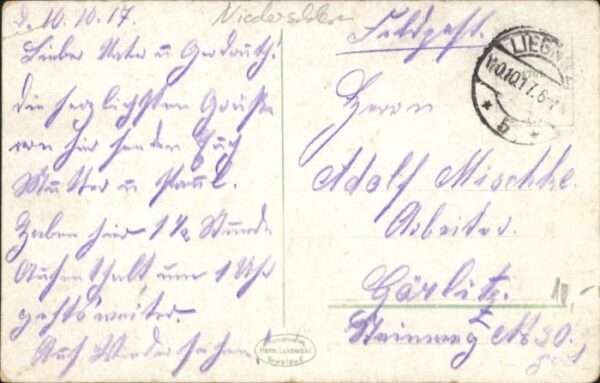 d. 10.10.17.
Lieber Vater u Gertrud!
Die herzlichsten Grüße
von hier senden Euch
Mutter u Paul.
Haben hier 1 ½ Stunde
Aufenthalt, um 1 Uhr
gehts weiter.
Auf Wiedersehen!
Feldpost.
LIEGNITZ
10.10.17. 6-
* b *
Herrn
Adolf Mischke.
Arbeiter.
Görlitz.
Steinweg № 30.
10,-